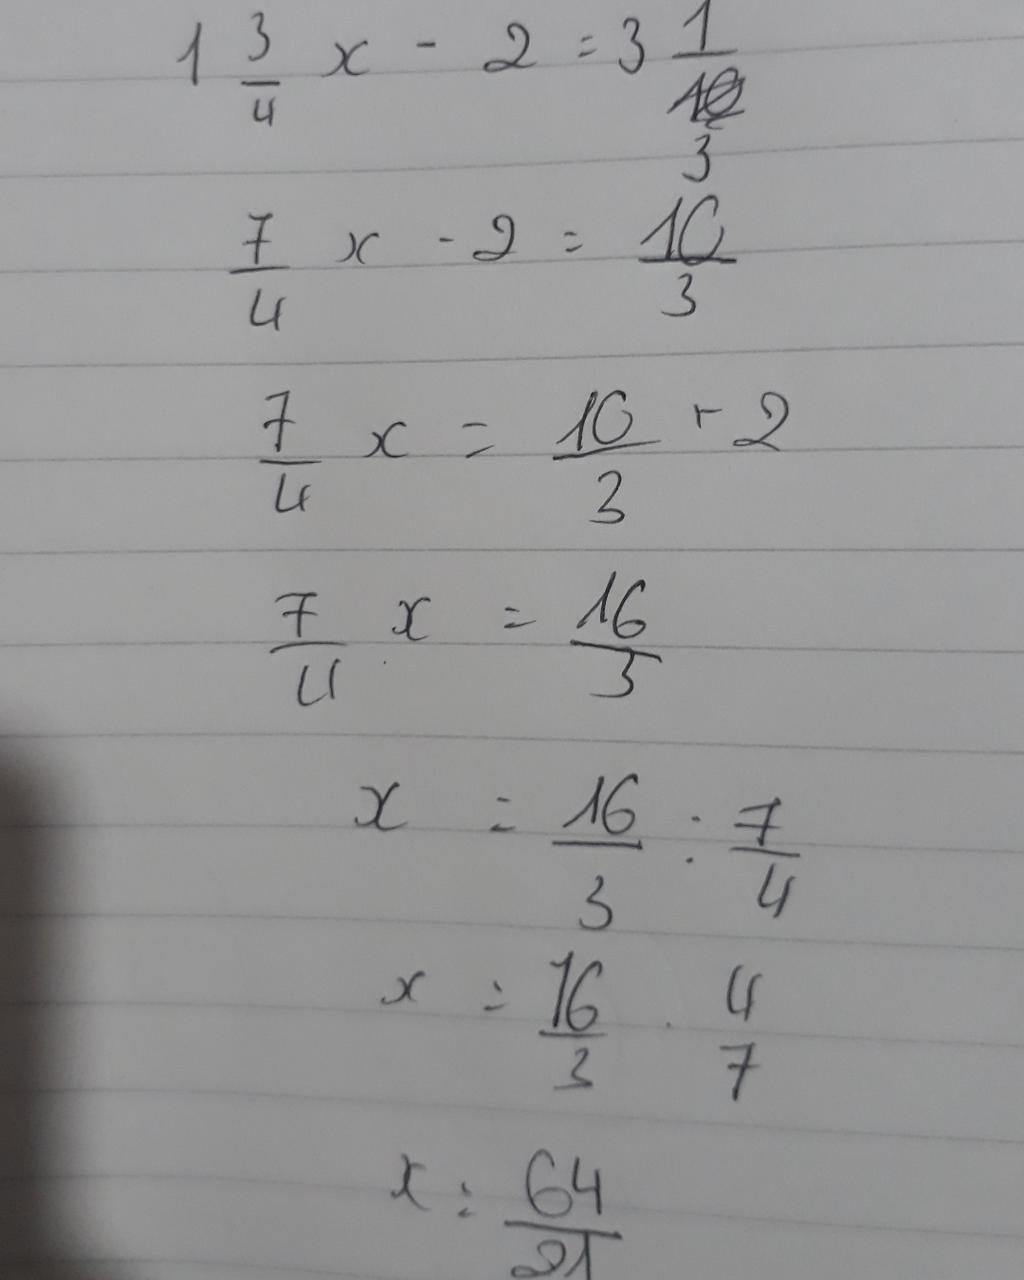 1 3/4 x - 2 = 3 1/3
7/4 x - 2 = 10/3
7/4 x = 10/3 + 2
7/4 x = 16/3
x = 16/3 : 7/4
x = 16/3 . 4/7
x = 64/21